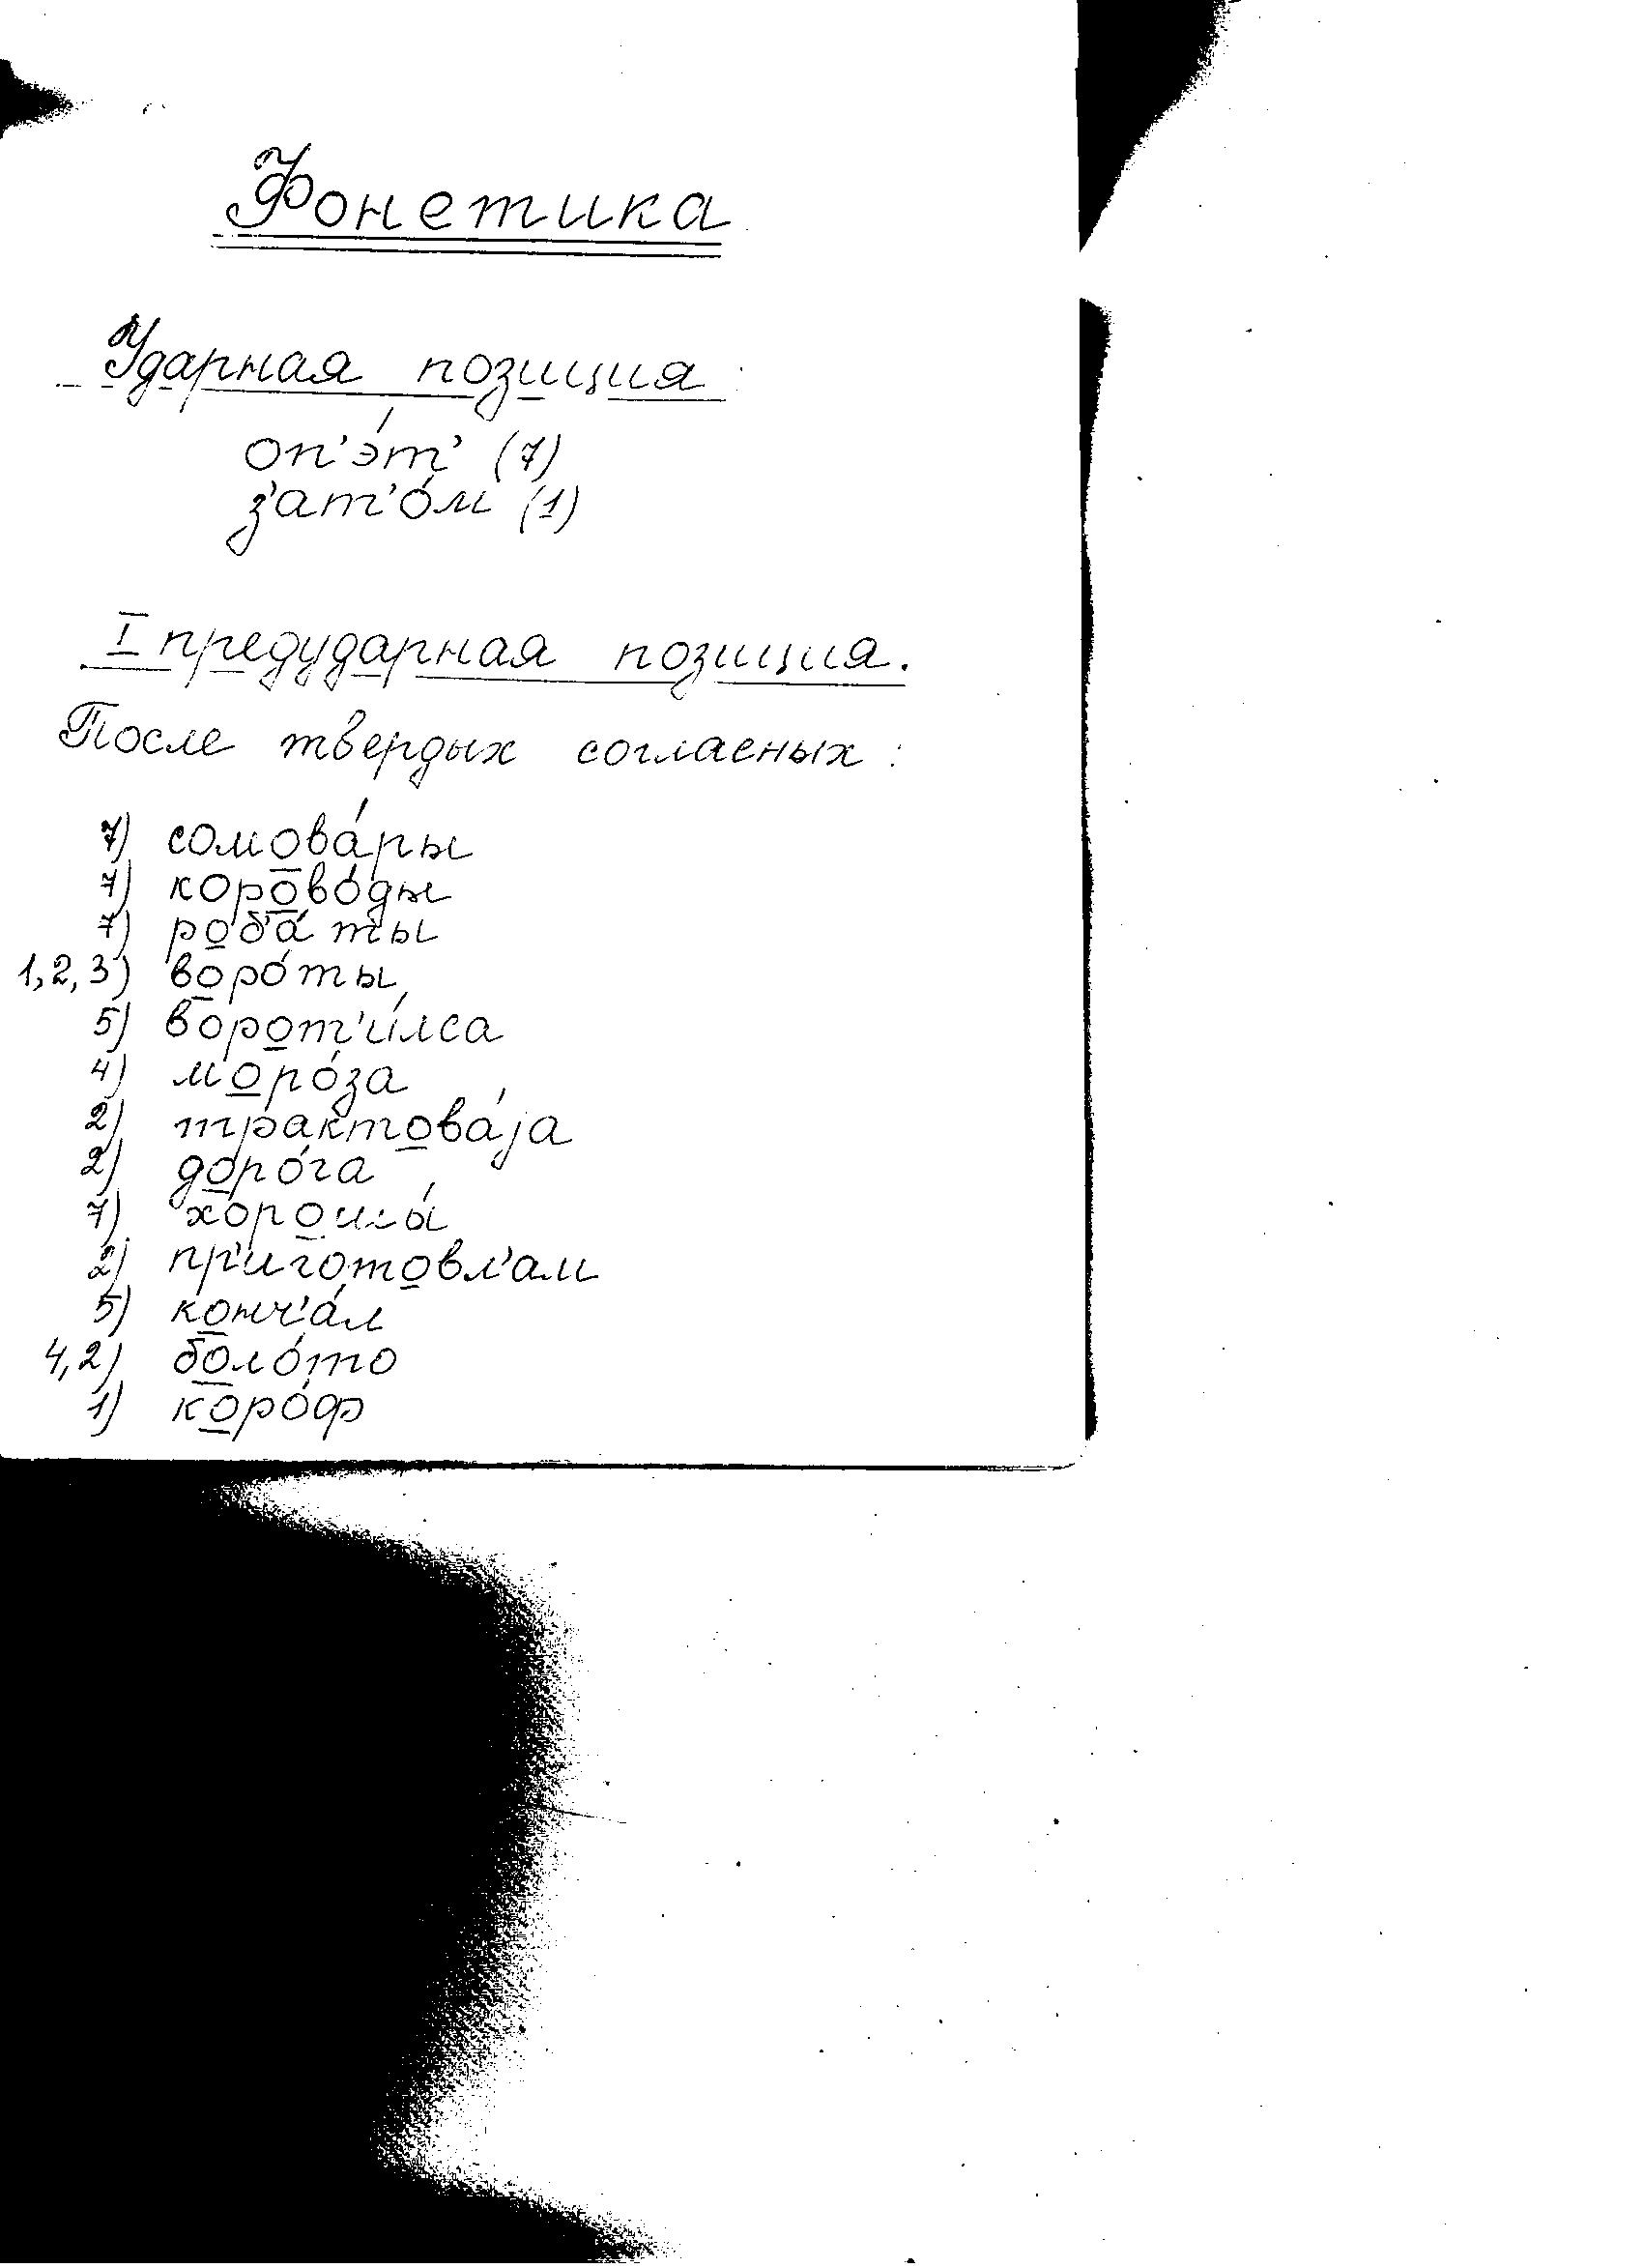 Фонетика
Ударная позиция:
оп'э́т' (7)
з'ат'о́м (1)
I предударная позиция.
После твердых согласных:
7) сомова́ры
7) корово́ды
7) роб'а́ты
1,2,3) воро́ты
5) ворот'и́лса
4) моро́за
2) трактова́jа
2) доро́га
7) хорошы́
2) пр'иготовл'ам
5) конч'а́л
4,2) боло́то
1) коро́ф